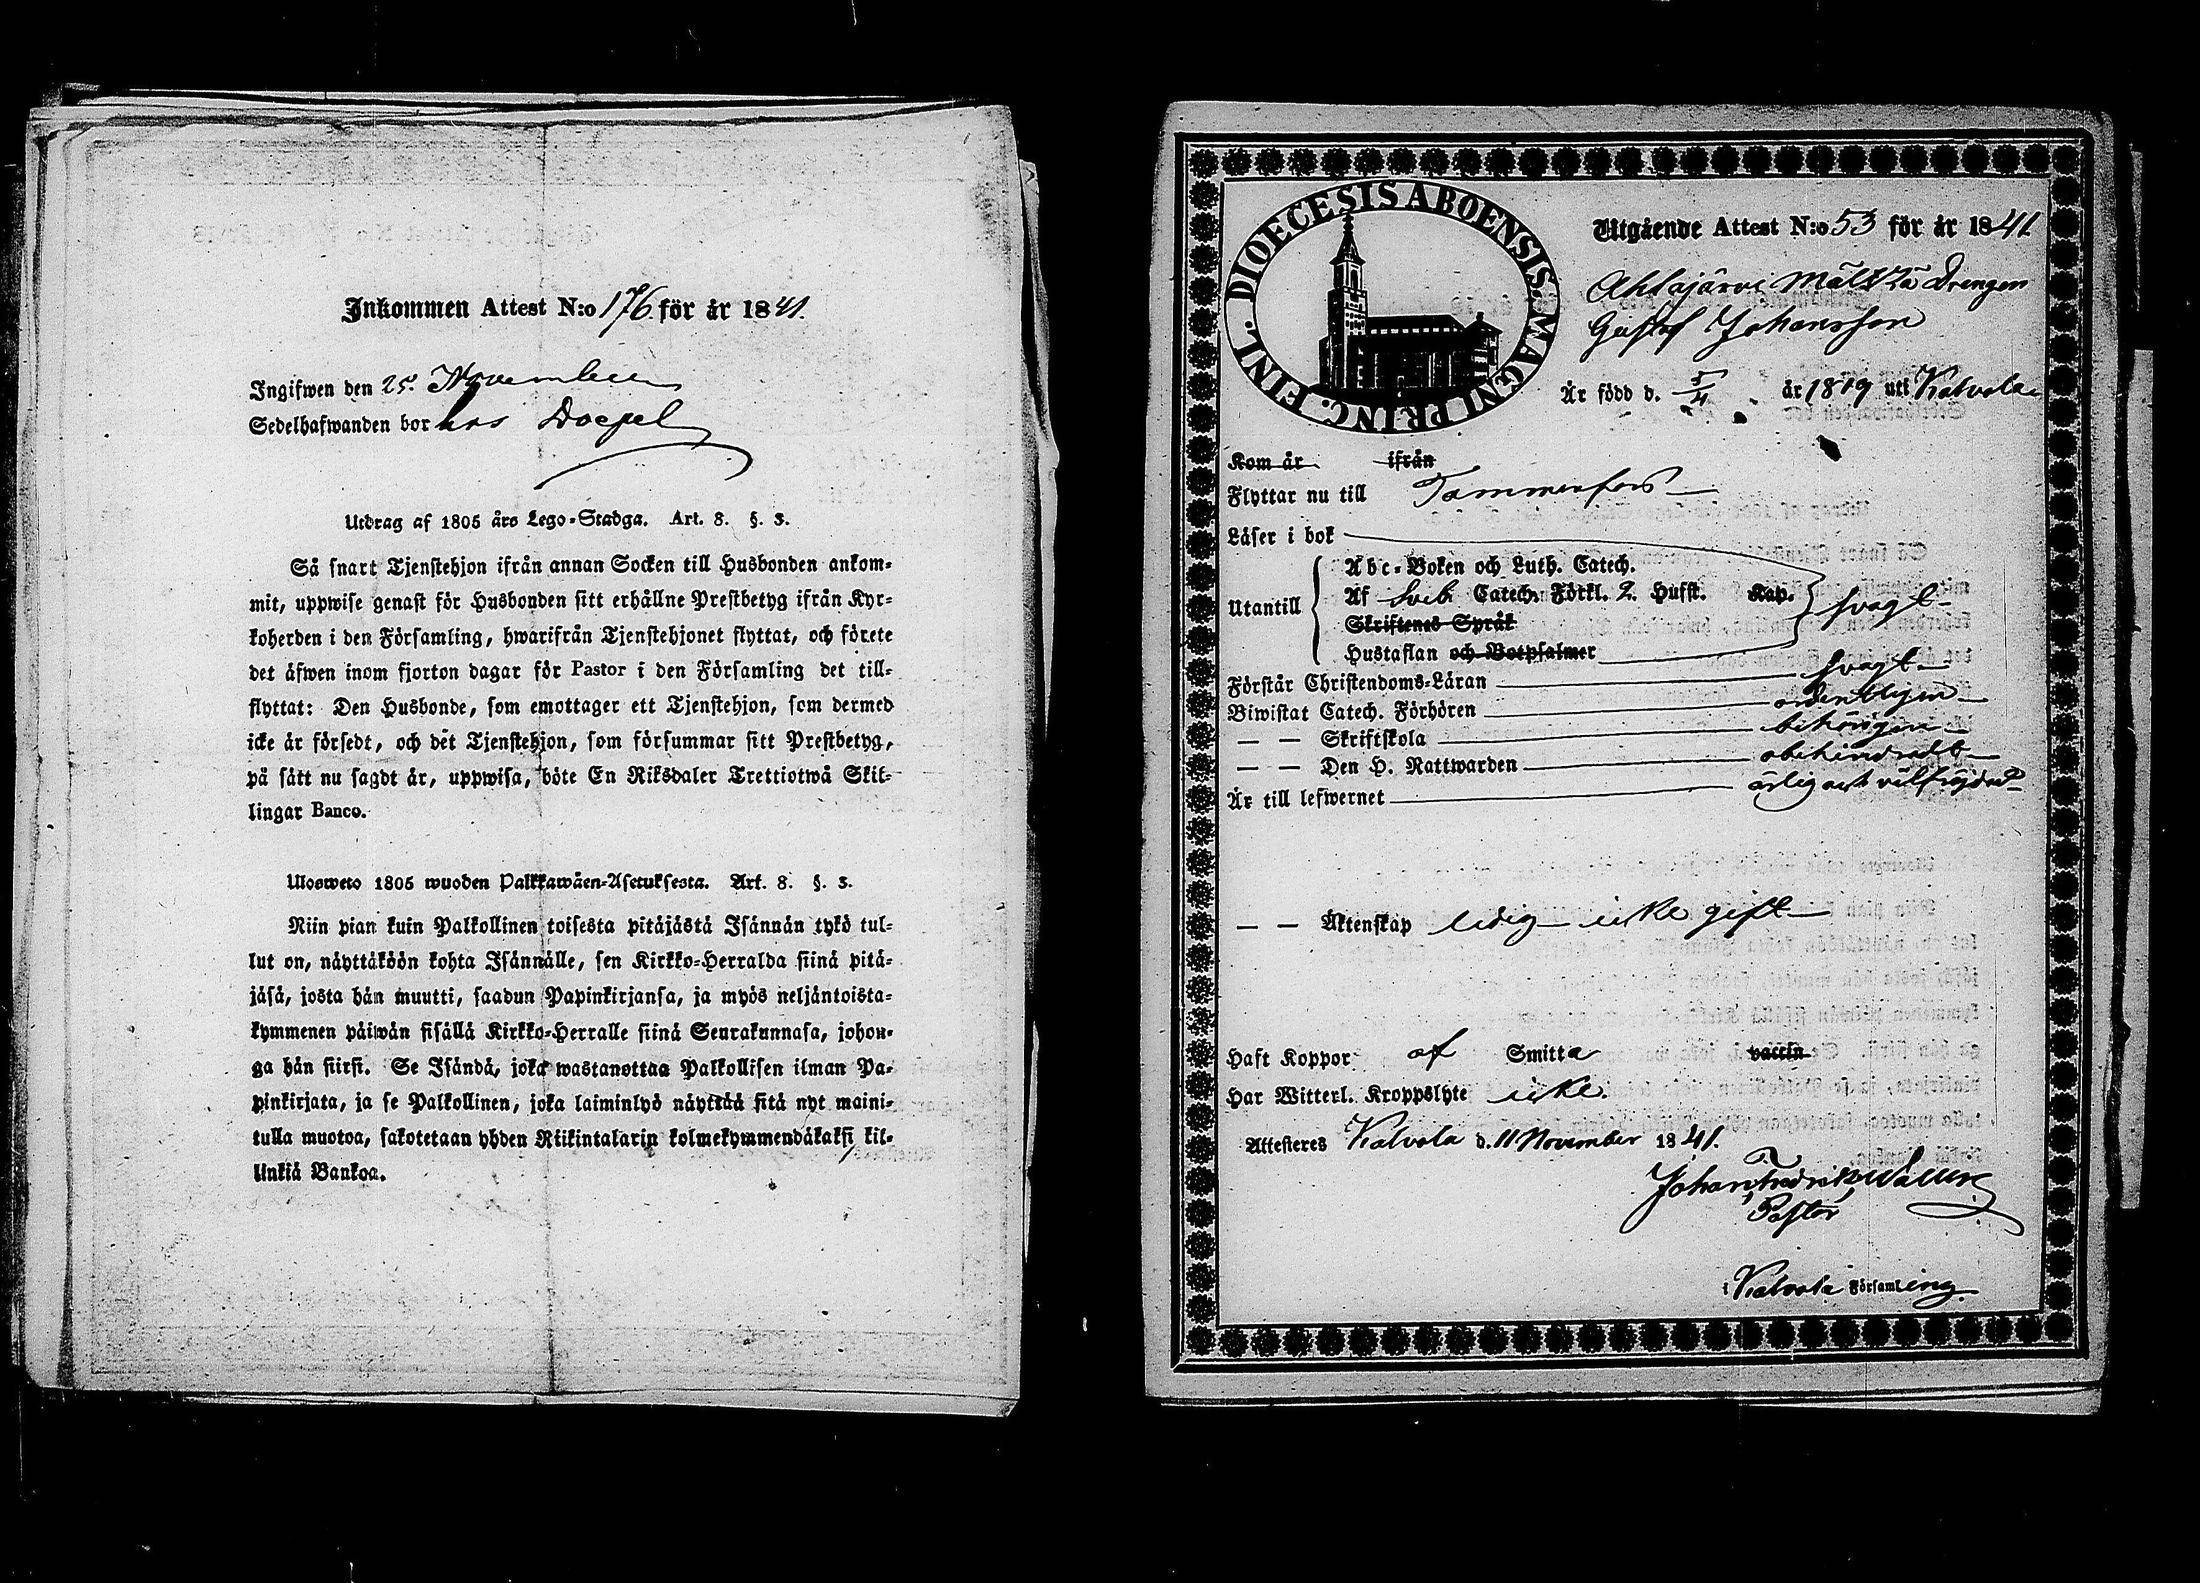 Inkommen Attest N:o 176. för år 1841.
Ingifwen den 25. November
Sedelhafwanden bor hos Doepel
Utdrag af 1805 års Lego-Stadga. Art. 8. §. 3.
Så snart Tjenstehjon ifrån annan Socken till Husbonden ankom-
mit, uppwise genast för Husbonden sitt erhållne Prestbetyg ifrån Kyr-
koherden i den Församling, hwarifrån Tjenstehjonet flyttat, och förete
det äfwen inom fjorton dagar för Pastor i den Församling det till-
flyttat: Den Husbonde, som emottager ett Tjenstehjon, som dermed
icke är försedt, och det Tjenstehjon, som försummar sitt Prestbetyg,
på sätt nu sagdt är, uppwisa, böte En Riksdaler Trettiotwå Skil-
lingar Banco.
Ulosweto 1805 wuoden Palkkawäen-Asetuksesta. Art. 8. §. 3.
Niin pian kuin Palkollinen toisesta pitäjästä Isännän tykö tul-
lut on, näyttäköön kohta Isännälle, sen Kirkko-Herralda siinä pitä-
jäsä, josta hän muutti, saadun Papinkirjansa, ja myös neljäntoista-
kymmenen päiwän sisällä Kirkko-Herralle siinä Seurakunnasa, johon-
ga hän siirsi. Se Isändä, joka wastanottaa Palkollisen ilman Pa-
pinkirjata, ja se Palkollinen, joka laiminlyö näyttää sitä nyt maini-
tulla muotoa, sakotetaan yhden Riikintalarin kolmekymmendäkaksi kil-
linkiä Bankoa.
DIOECESIS ABOENSIS. MAGNI PRINC. FINL.
Utgående Attest N:o 53 för år 1841.
Ahlajärvi Drengen
Gustaf Johansson
Är född d. 5/4 år 1819 uti Kalvola
Kom år ifrån
Flyttar nu till Tammerfors
Läser i bok
Utantill
Abc-Boken och Luth. Catech.
Af Sveb. Catech. Förkl. 2. Hufst. Kap. svagt
Skriftenes Språk
Hustaflan och Botpsalmer
Förstår Christendoms-Läran svagt
Biwistat Catech. Förhören ordentligen
— — Skriftskola behörigen
— — Den H. Nattwarden obehindradt
Är till lefwernet ärlig och välfrejdad
— — Äktenskap ledig icke gift
Haft Koppor af Smitta vaccin
Har Witterl. Kroppslyte icke.
Attesteres Kalvola d. 11 November 1841.
Johan Fredrik
Pastor
i Kalvola Församling